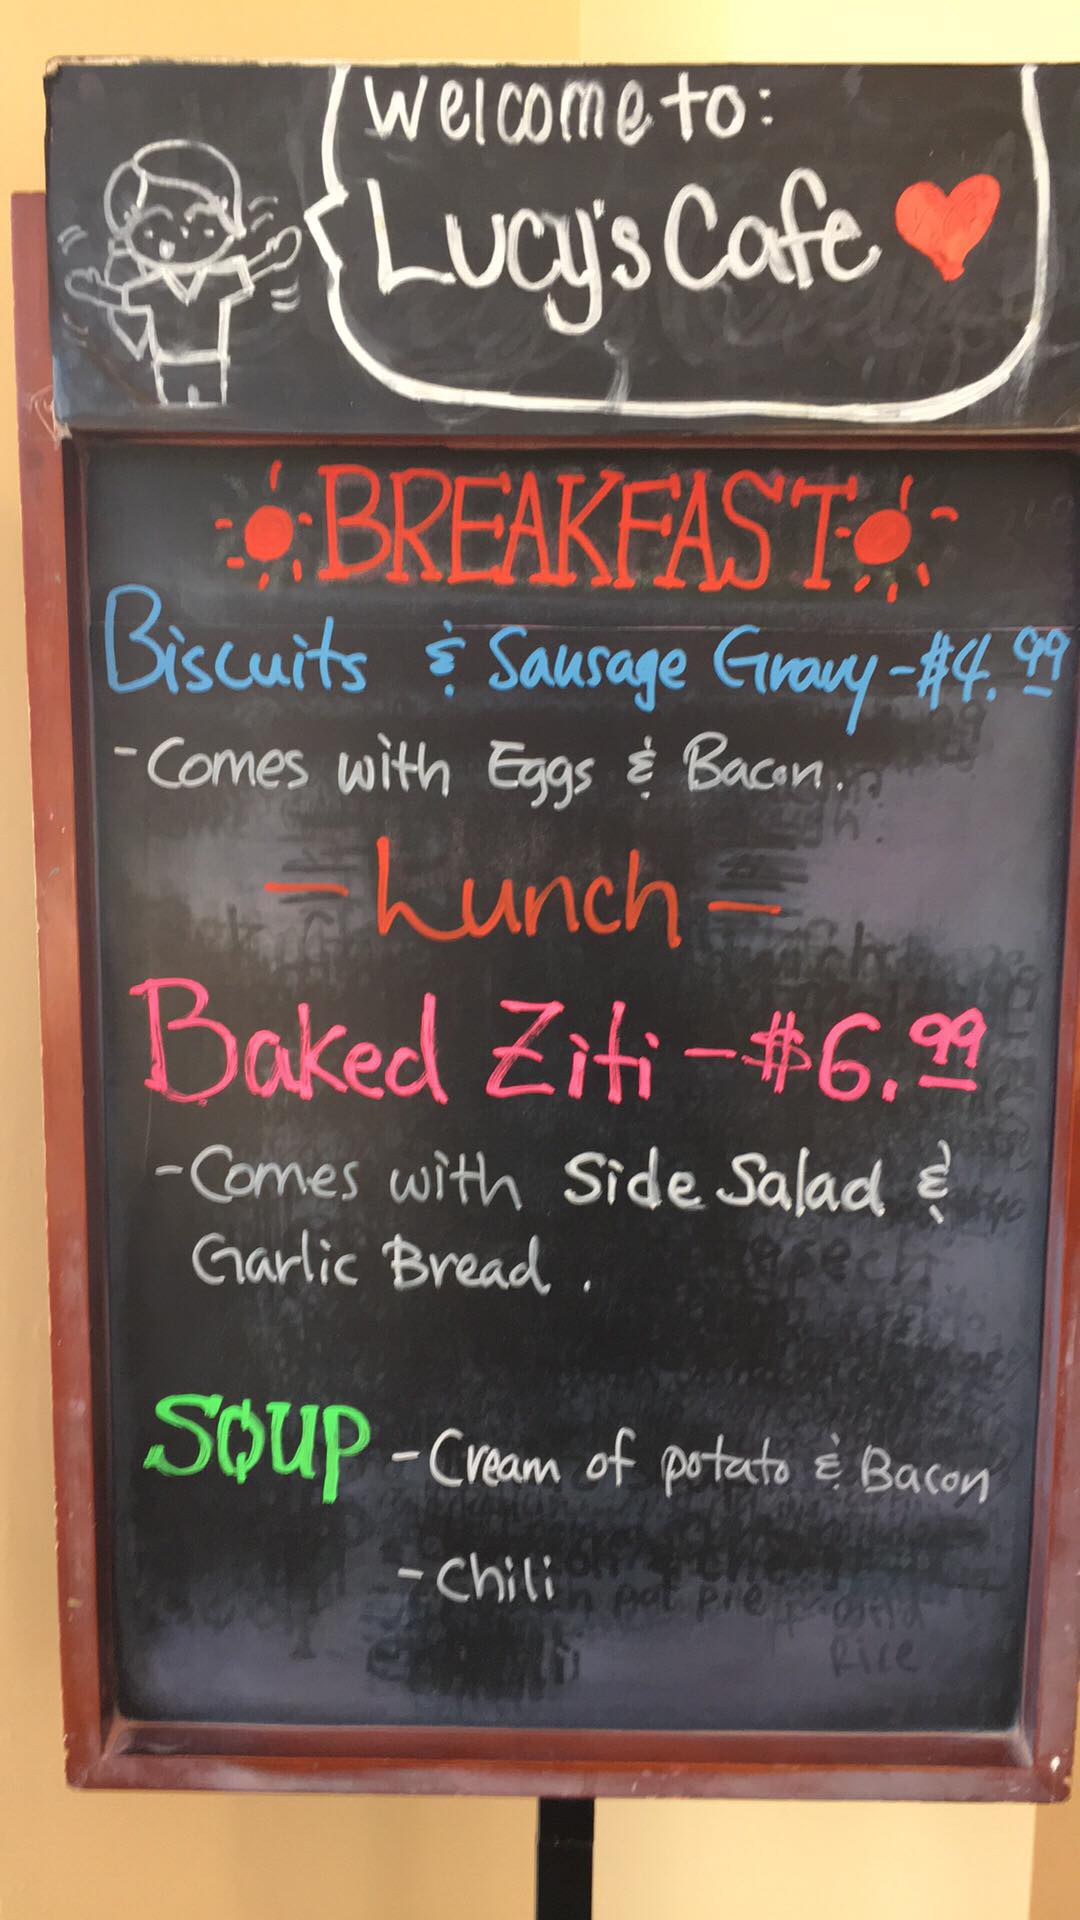 Welcome to:
Lucy's Cafe
BREAKFAST
Biscuits & Sausage Gravy - $4.99
- Comes with Eggs & Bacon.
- Lunch -
Baked Ziti - $6.99
- Comes with Side Salad &
Garlic Bread.
SOUP - Cream of potato & Bacon
- Chili
pot pie
wild
Rice